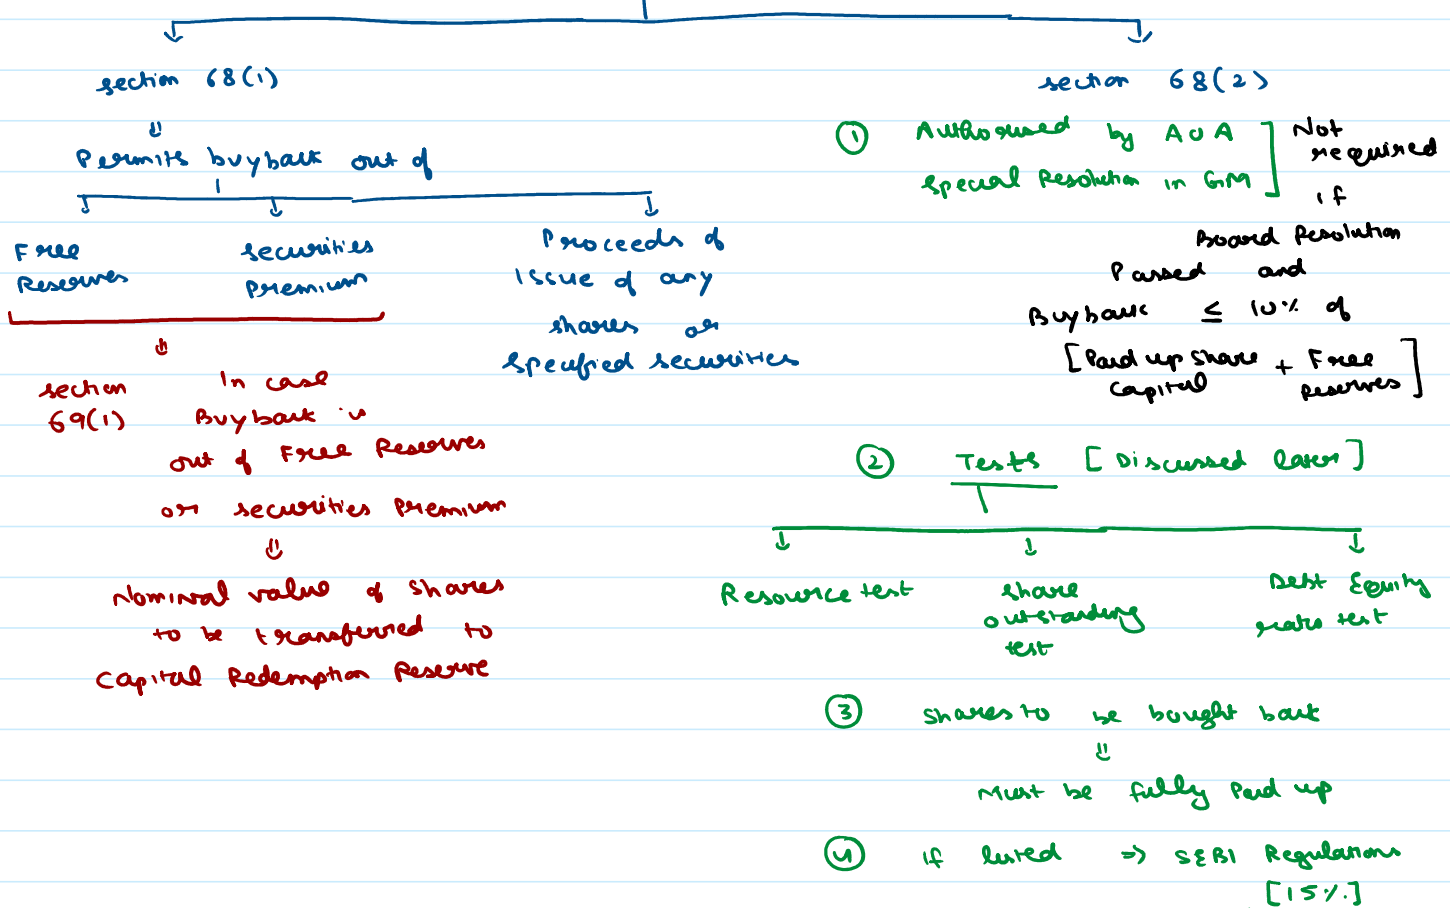 section 68(1)
Permits buyback out of
Free Reserves
securities Premium
Proceeds of
issue of any
shares or
specified securities
section 69(1)
In case
Buyback is
out of Free Reserves
or securities Premium
Nominal value of shares
to be transferred to
Capital Redemption Reserve
section 68(2)
① Authorised by AOA
special Resolution in GM
Not required
if
Board Resolution
Passed and
Buyback ≤ 10% of
[Paid up share capital + Free Reserves]
② Tests [Discussed later]
Resource test
share outstanding test
Debt Equity ratio test
③ shares to be bought back
Must be fully Paid up
④ if listed ⇒ SEBI Regulations
[15%]